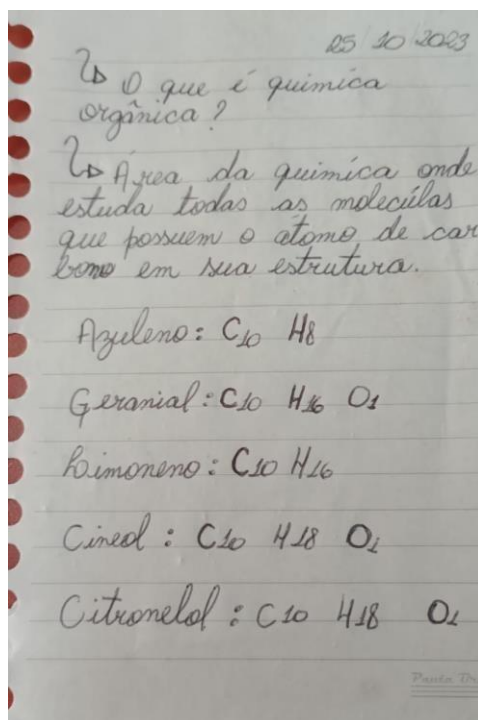 25 10 2023
↳ O que é química
orgânica?
↳ Área da química onde
estuda todas as molecúlas
que possuem o átomo de car
bono em sua estrutura.
Azuleno: C10 H8
Geranial: C10 H16 O1
Limoneno: C10 H16
Cineol: C10 H18 O1
Citronelol: C10 H18 O1